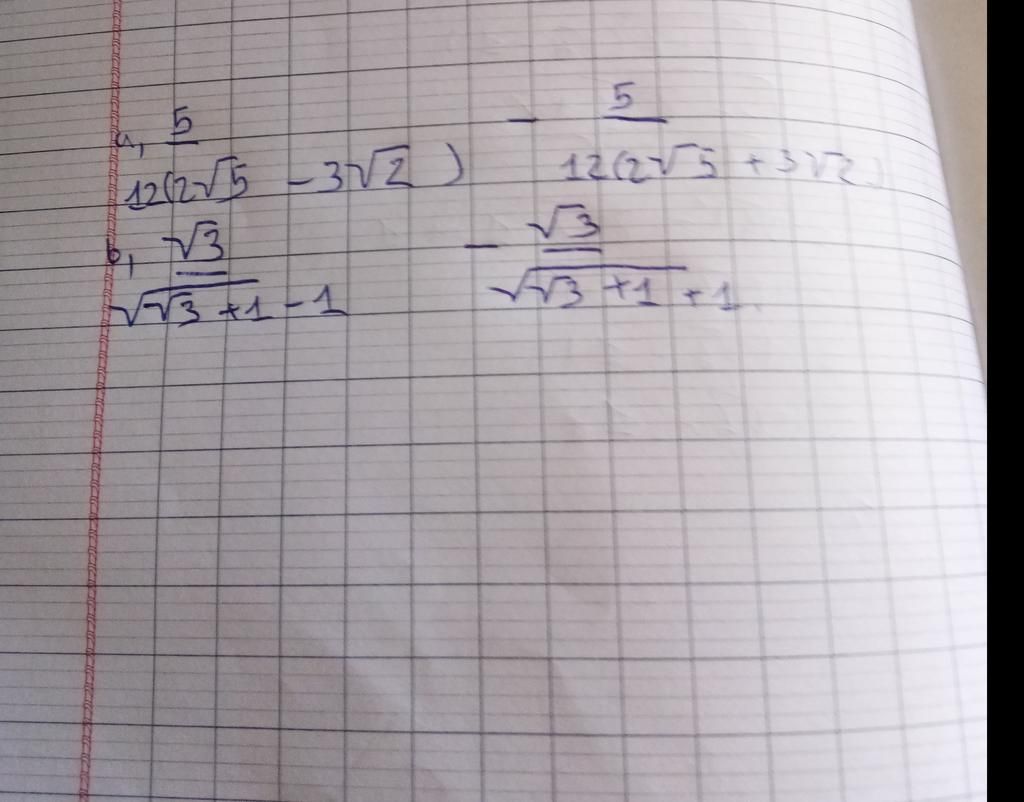 a, 5 - 5
12(2√5 - 3√2) 12(2√5 + 3√2)
b, √3 - √3
√(√3 + 1) - 1 √(√3 + 1) + 1